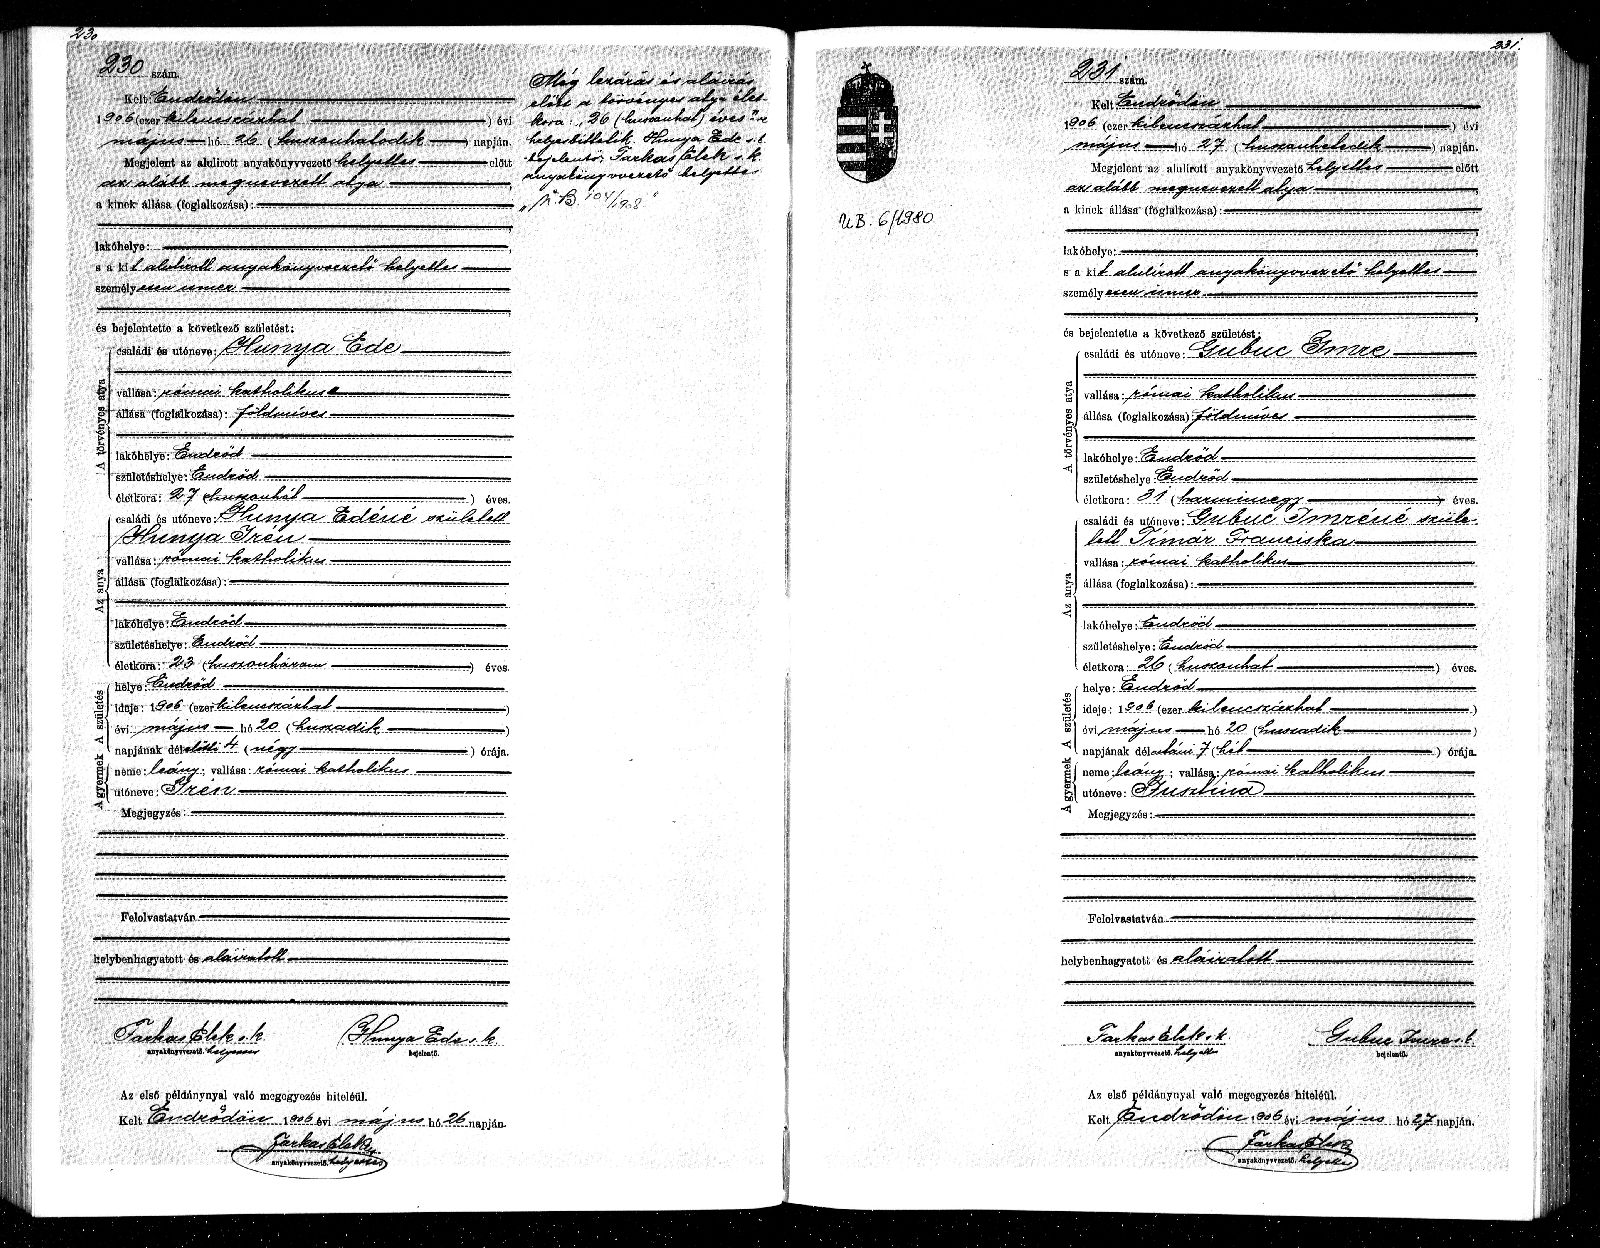 230
230 szám.
Kelt Endrődön
1906 (ezer kilencszázhat ) évi
május hó 26 ( huszonhatodik ) napján.
Megjelent az alulirott anyakönyvvezető helyettes előtt
az alább megnevezett atya
a kinek állása (foglalkozása):
lakóhelye:
s a kit alulírott anyakönyvvezető helyettes
személyesen ismer
és bejelentette a következő születést:
A törvényes atya
családi és utóneve: Hunya Ede
vallása: római katholikus
állása (foglalkozása): földmíves
lakóhelye: Endrőd
születéshelye: Endrőd
életkora: 27 (huszonhét ) éves.
Az anya
családi és utóneve: Hunya Edéné született
Hunya Irén
vallása: római katholikus
állása (foglalkozása):
lakóhelye: Endrőd
születéshelye: Endrőd
életkora: 23 (huszonhárom ) éves.
A születés
helye: Endrőd
ideje: 1906 (ezer kilencszázhat )
évi május hó 20 (huszadik )
napjának délelőtti 4 ( négy ) órája.
A gyermek
neme: leány; vallása: római katholikus
utóneve: Irén
Megjegyzés:
Felolvastatván
helybenhagyatott és aláíratott
Farkas Elek s. k. Hunya Ede s. k.
anyakönyvvezető helyettes bejelentő.
Az első példánynyal való megegyezés hiteléül.
Kelt Endrődön 1906 évi május hó 26 napján.
Farkas Elek
anyakönyvvezető. helyettes
Még lezárás és aláírás
előtt a törvényes atya élet-
kora: „26 (huszonhat) éves"-re
helyesbíttetik. Hunya Ede s. k.
bejelentő, Farkas Elek s. k.
anyakönyvvezető helyettes
„N. B. 104/1908"
231.
231 szám.
Kelt Endrődön
1906 (ezer kilencszázhat ) évi
május hó 27 ( huszonhetedik ) napján.
Megjelent az alulirott anyakönyvvezető helyettes előtt
az alább megnevezett atya
a kinek állása (foglalkozása):
lakóhelye:
s a kit alulírott anyakönyvvezető helyettes
személyesen ismer
és bejelentette a következő születést:
A törvényes atya
családi és utóneve: Gubuc Imre
vallása: római katholikus
állása (foglalkozása) földmíves
lakóhelye: Endrőd
születéshelye: Endrőd
életkora: 31 (harminczegy ) éves.
Az anya
családi és utóneve: Gubuc Imréné szüle-
tett Tímár Franciska
vallása: római katholikus
állása (foglalkozása):
lakóhelye: Endrőd
születéshelye: Endrőd
életkora: 26 (huszonhat ) éves.
A születés
helye: Endrőd
ideje: 1906 (ezer kilencszázhat )
évi május hó 20 (huszadik )
napjának délutáni 7 (hét ) órája.
A gyermek
neme: leány; vallása: római katholikus
utóneve: Jusztina
Megjegyzés:
Felolvastatván
helybenhagyatott és aláíratott
Farkas Elek s. k. Gubuc Imre s. k.
anyakönyvvezető. helyettes bejelentő.
Az első példánynyal való megegyezés hiteléül.
Kelt Endrődön 1906 évi május hó 27 napján.
Farkas Elek
anyakönyvvezető. helyettes
UB. 6/1980